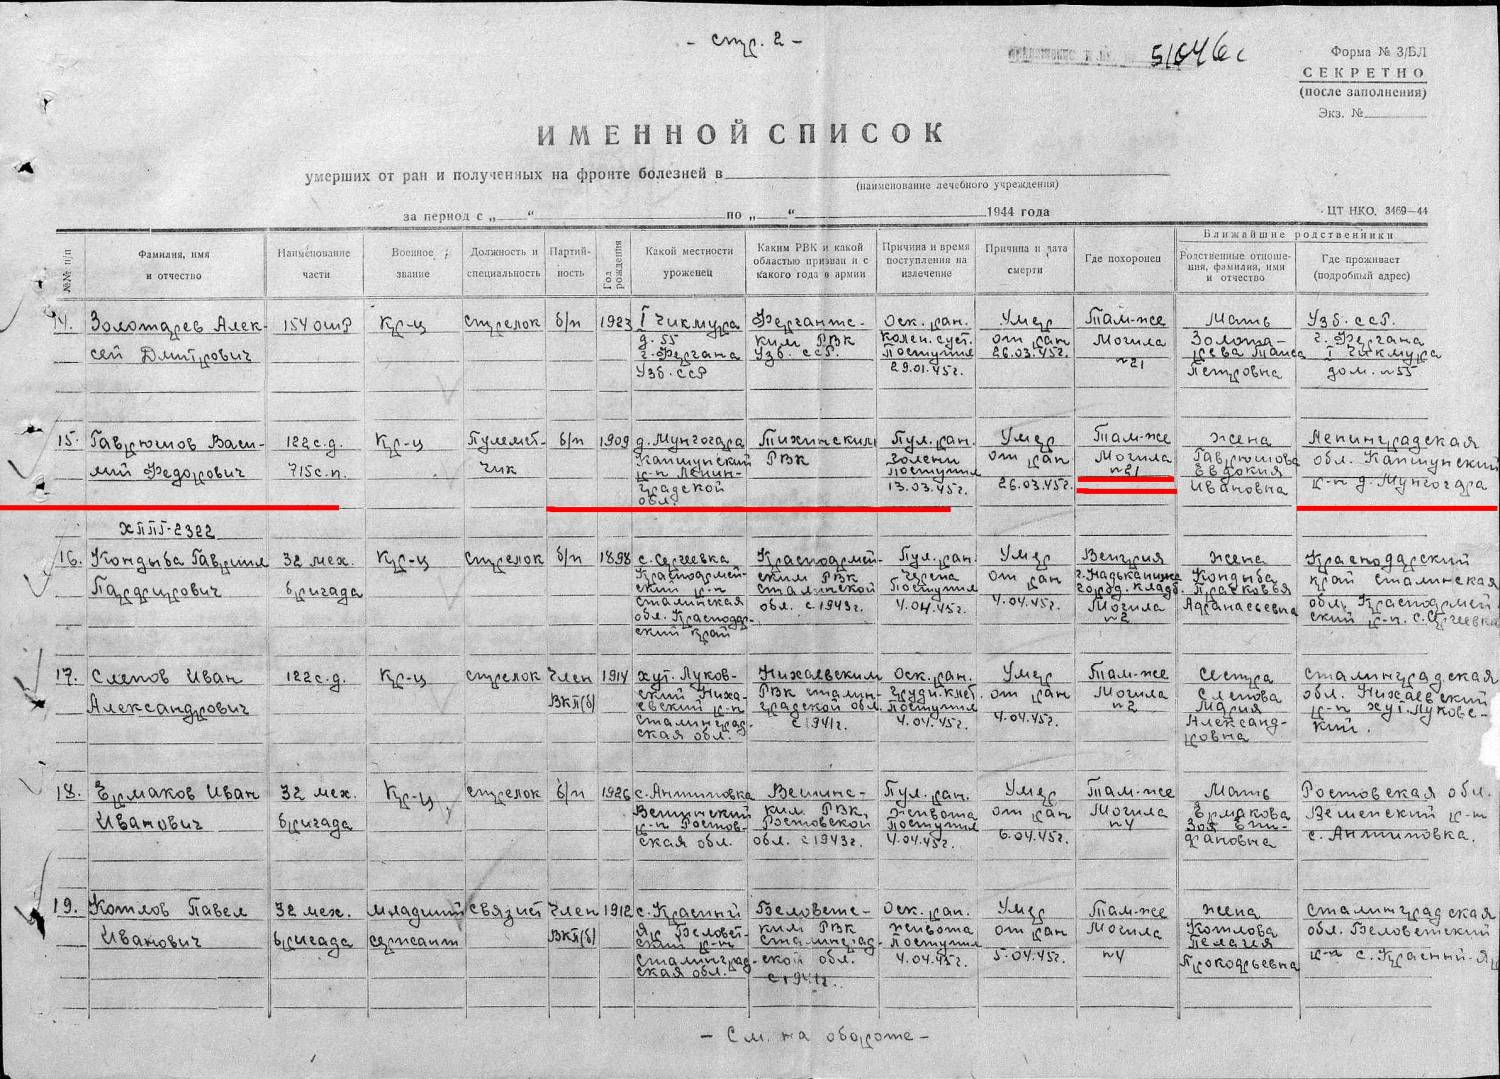 - стр. 2 -
51046с
Форма № 3/БЛ
СЕКРЕТНО
(после заполнения)
Экз. №
ИМЕННОЙ СПИСОК
умерших от ран и полученных на фронте болезней в
(наименование лечебного учреждения)
за период с „ “ по „ “ 1944 года
ЦТ НКО. 3469—44
№№ п/п
Фамилия, имя и отчество
Наименование части
Военное звание
Должность и специальность
Партий-ность
Год рождения
Какой местности уроженец
Каким РВК и какой областью призван и с какого года в армии
Причина и время поступления на излечение
Причина и дата смерти
Где похоронен
Ближайшие родственники
Родственные отноше-ния, фамилия, имя и отчество
Где проживает (подробный адрес)
14. Золотарев Алек- 154 ошр Кр-ц стрелок б/п 1923 I Чикмура Ферганс- Оск. ран. Умер Там-же Мать Узб. ССР.
сей Дмитрович д. 55 ким РВК колен. суст. от ран Могила Золота- г. Фергана
г. Фергана Узб. ССР. Поступил 26.03.45г. n21 рева Таиса I Чикмура
Узб. ССР 29.01.45г. Петровна дом. n55
15. Гаврюшов Васи- 122 с.д. Кр-ц Пулемет- б/п 1909 д. Мунгогара Тихинским Пул. ран. Умер Там-же жена Ленинградская
лий Федорович 715 с.п. чик Капшунский РВК голени от ран Могила Гаврюшова обл. Капшунский
р-н Ленин- Поступил n21 Евдокия
градской 13.03.45г. 26.03.45г. Ивановна р-н д. Мунгогара
обл.
ХППГ-2322
16. Кондыба Гавриил 32 мех. Кр-ц стрелок б/п 1898 с. Сергеевка Красноармей- Пул. ран. Умер Венгрия жена Краснодарский
Парфирович бригада Красноармей- ским РВК черепа от ран г. Надьканижа Кондыба край сталинская
ский р-н сталинской Поступил город. кладб. Прасковья
сталинская обл. с 1943г. 4.04.45г. 4.04.45г. Могила Афанасьевна обл. Красноармей-
обл. Краснодар- n2 ский р-н. с. Сергеевка
ский край
17. Слепов Иван 122 с.д. Кр-ц стрелок Член 1914 хут. Луков- Нихаевским Оск. ран. Умер Там-же сестра сталинградская
Александрович ВКП(б) ский Ниха- РВК сталин- груди. клет. от ран Могила Слепова обл. Нихаевский
евский р-н градской обл. Поступил n2 Мария р-н хут. Луковс-
сталинград- с 1941г. 4.04.45г. 4.04.45г. Александ- кий.
ская обл. ровна
18. Ермаков Иван 32 мех. Кр-ц стрелок б/п 1926 с. Антиповка Вешинс- Пул. ран. Умер Там-же Мать Ростовская обл.
Иванович бригада Вешинский ким РВК живота от ран Могила Ермакова Вешенский р-н
р-н Ростов- Ростовской Поступил n4 Зоя Епи-
ская обл. обл. с 1943г. 4.04.45г. 6.04.45г. фановна с. Антиповка.
19. Котлов Павел 32 мех. младший связист Член 1912 с. Красный Беловетс- Оск. ран. Умер Там-же жена сталинградская
Иванович бригада сержант ВКП(б) Яр Беловет- ким РВК живота от ран Могила Котлова обл. Беловетский
ский р-н сталинград- Поступил Пелагея
сталинград- ской обл. 4.04.45г. 5.04.45г. n4 Прокофьевна р-н с. Красный-Яр
ская обл. с 1941г.
- См. на обороте -